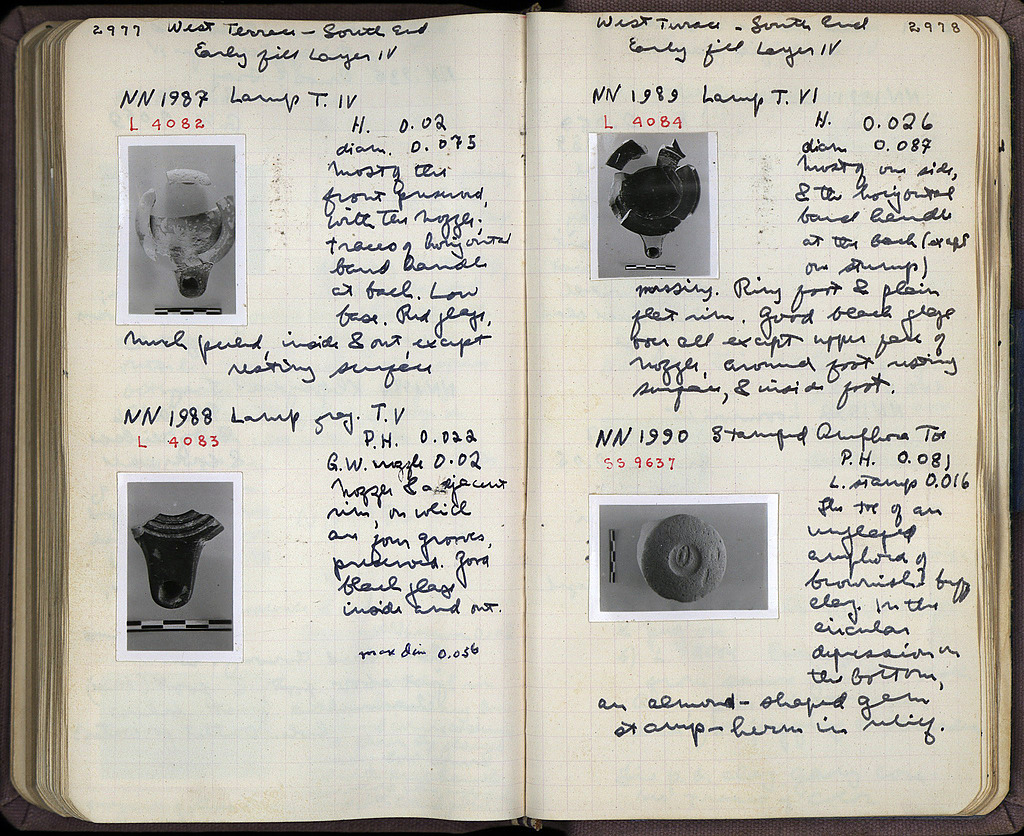 2977 West Terrace - South End
Early fill Layer IV
NN 1987 Lamp T. IV
L 4082
H. 0.02
diam. 0.075
Most of the
front preserved,
with the nozzle.
traces of horizontal
band handle
at back. Low
base. Red glaze,
much peeled, inside & out, except
resting surface
NN 1988 Lamp frag. T. V
L 4083
P.H. 0.022
G.W. nozzle 0.02
Nozzle & adjacent
rim, on which
are four grooves,
preserved. Good
black glaze
inside and out.
max dim 0.056
West Terrace - South End 2978
Early fill Layer IV
NN 1989 Lamp T. VI
L 4084
H. 0.026
diam 0.087
Most of one side,
& the horizontal
band handle
at the back (except
one stump)
missing. Ring foot & plain
flat rim. Good black glaze
over all except upper face of
nozzle, around foot, resting
surface, & inside foot.
NN 1990 Stamped Amphora Toe
SS 9637
P.H. 0.081
L. stamp 0.016
The toe of an
unglazed
amphora of
brownish buff
clay. In the
circular
depression on
the bottom,
an almond-shaped gem
stamp-herm in relief.